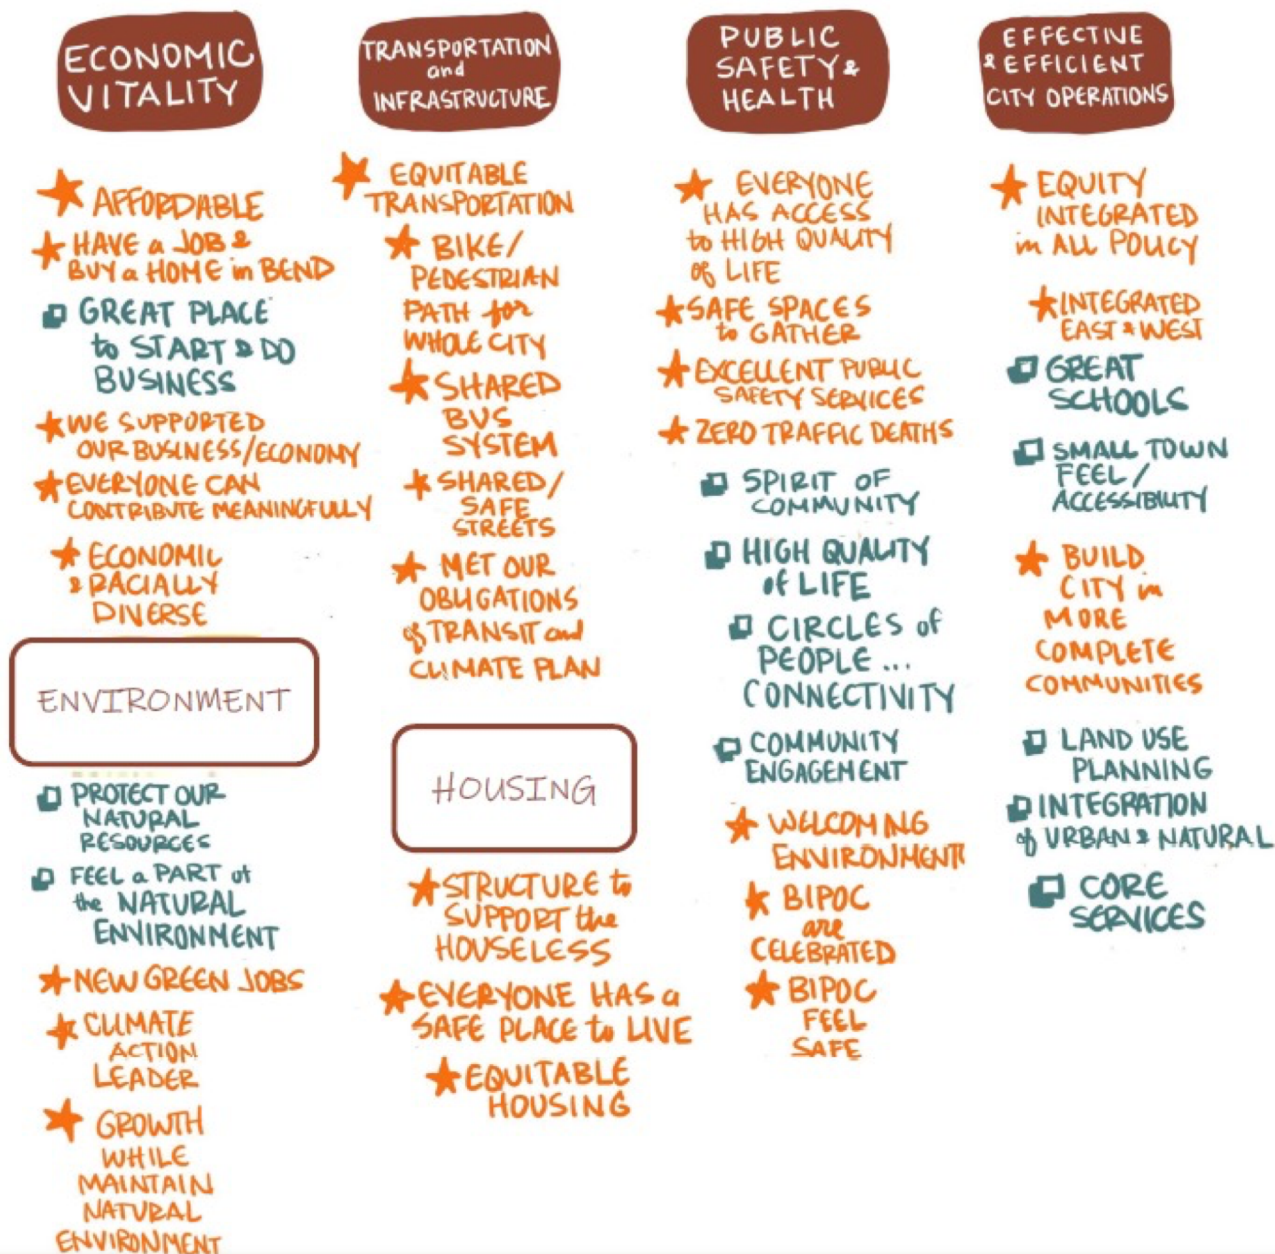 ECONOMIC
VITALITY
AFFORDABLE
HAVE a JOB &
BUY a HOME in BEND
GREAT PLACE
to START & DO
BUSINESS
WE SUPPORTED
OUR BUSINESS/ECONOMY
EVERYONE CAN
CONTRIBUTE MEANINGFULLY
ECONOMIC
& RACIALLY
DIVERSE
ENVIRONMENT
PROTECT OUR
NATURAL
RESOURCES
FEEL a PART of
the NATURAL
ENVIRONMENT
NEW GREEN JOBS
CLIMATE
ACTION
LEADER
GROWTH
WHILE
MAINTAIN
NATURAL
ENVIRONMENT
TRANSPORTATION
and
INFRASTRUCTURE
EQUITABLE
TRANSPORTATION
BIKE/
PEDESTRIAN
PATH for
WHOLE CITY
SHARED
BUS
SYSTEM
SHARED/
SAFE
STREETS
MET OUR
OBLIGATIONS
of TRANSIT and
CLIMATE PLAN
HOUSING
STRUCTURE to
SUPPORT the
HOUSELESS
EVERYONE HAS a
SAFE PLACE to LIVE
EQUITABLE
HOUSING
PUBLIC
SAFETY &
HEALTH
EVERYONE
HAS ACCESS
to HIGH QUALITY
of LIFE
SAFE SPACES
to GATHER
EXCELLENT PUBLIC
SAFETY SERVICES
ZERO TRAFFIC DEATHS
SPIRIT OF
COMMUNITY
HIGH QUALITY
of LIFE
CIRCLES of
PEOPLE...
CONNECTIVITY
COMMUNITY
ENGAGEMENT
WELCOMING
ENVIRONMENT
BIPOC
are
CELEBRATED
BIPOC
FEEL
SAFE
EFFECTIVE
& EFFICIENT
CITY OPERATIONS
EQUITY
INTEGRATED
in ALL POLICY
INTEGRATED
EAST & WEST
GREAT
SCHOOLS
SMALL TOWN
FEEL/
ACCESSIBILITY
BUILD
CITY in
MORE
COMPLETE
COMMUNITIES
LAND USE
PLANNING
INTEGRATION
of URBAN & NATURAL
CORE
SERVICES